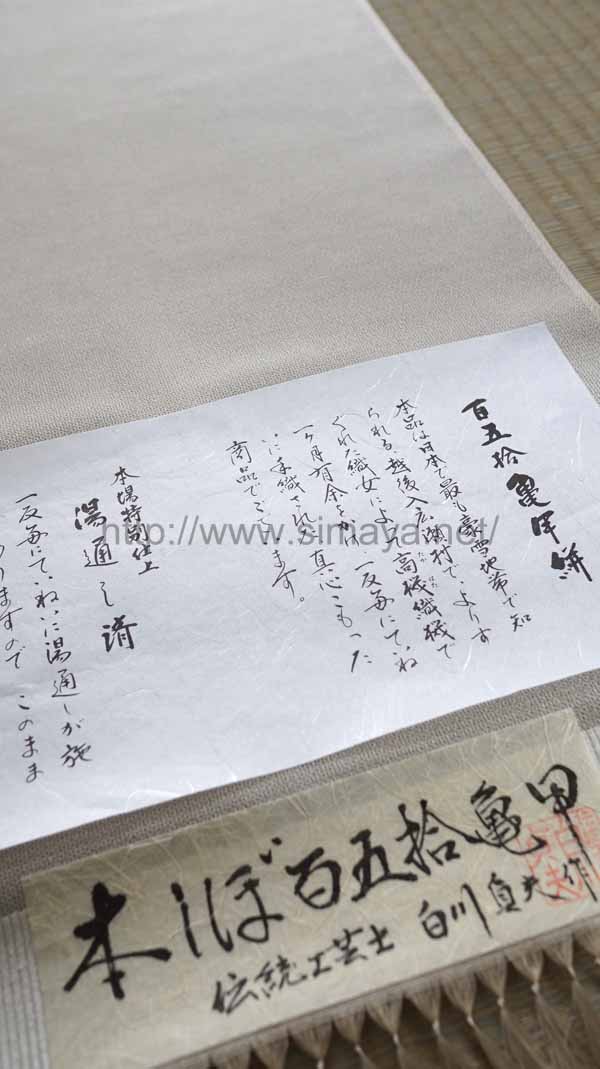 百五拾亀甲絣
本品は日本で最も豪雪地帯で知
られる、越後入広瀬村で、よりす
ぐれた織女によって高機織機で
一ヶ月有余をかけ一反毎にていね
いに手織された真心こもった
商品でございます。
本場特別仕上
湯通し済
一反毎にていねいに湯通しが施
ありますので このまま
http://www.simaya.net/
本しぼ百五拾亀甲
伝統工芸士 白川 真夫 作